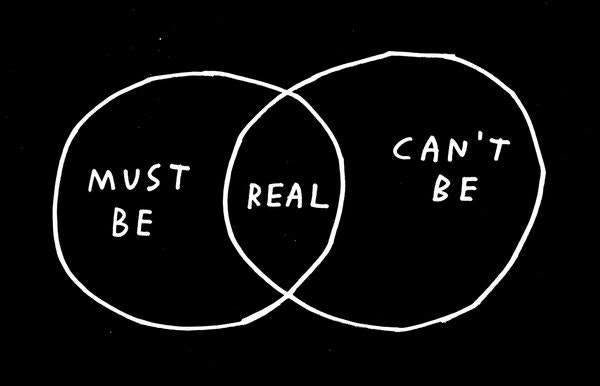 MUST
BE
REAL
CAN'T
BE